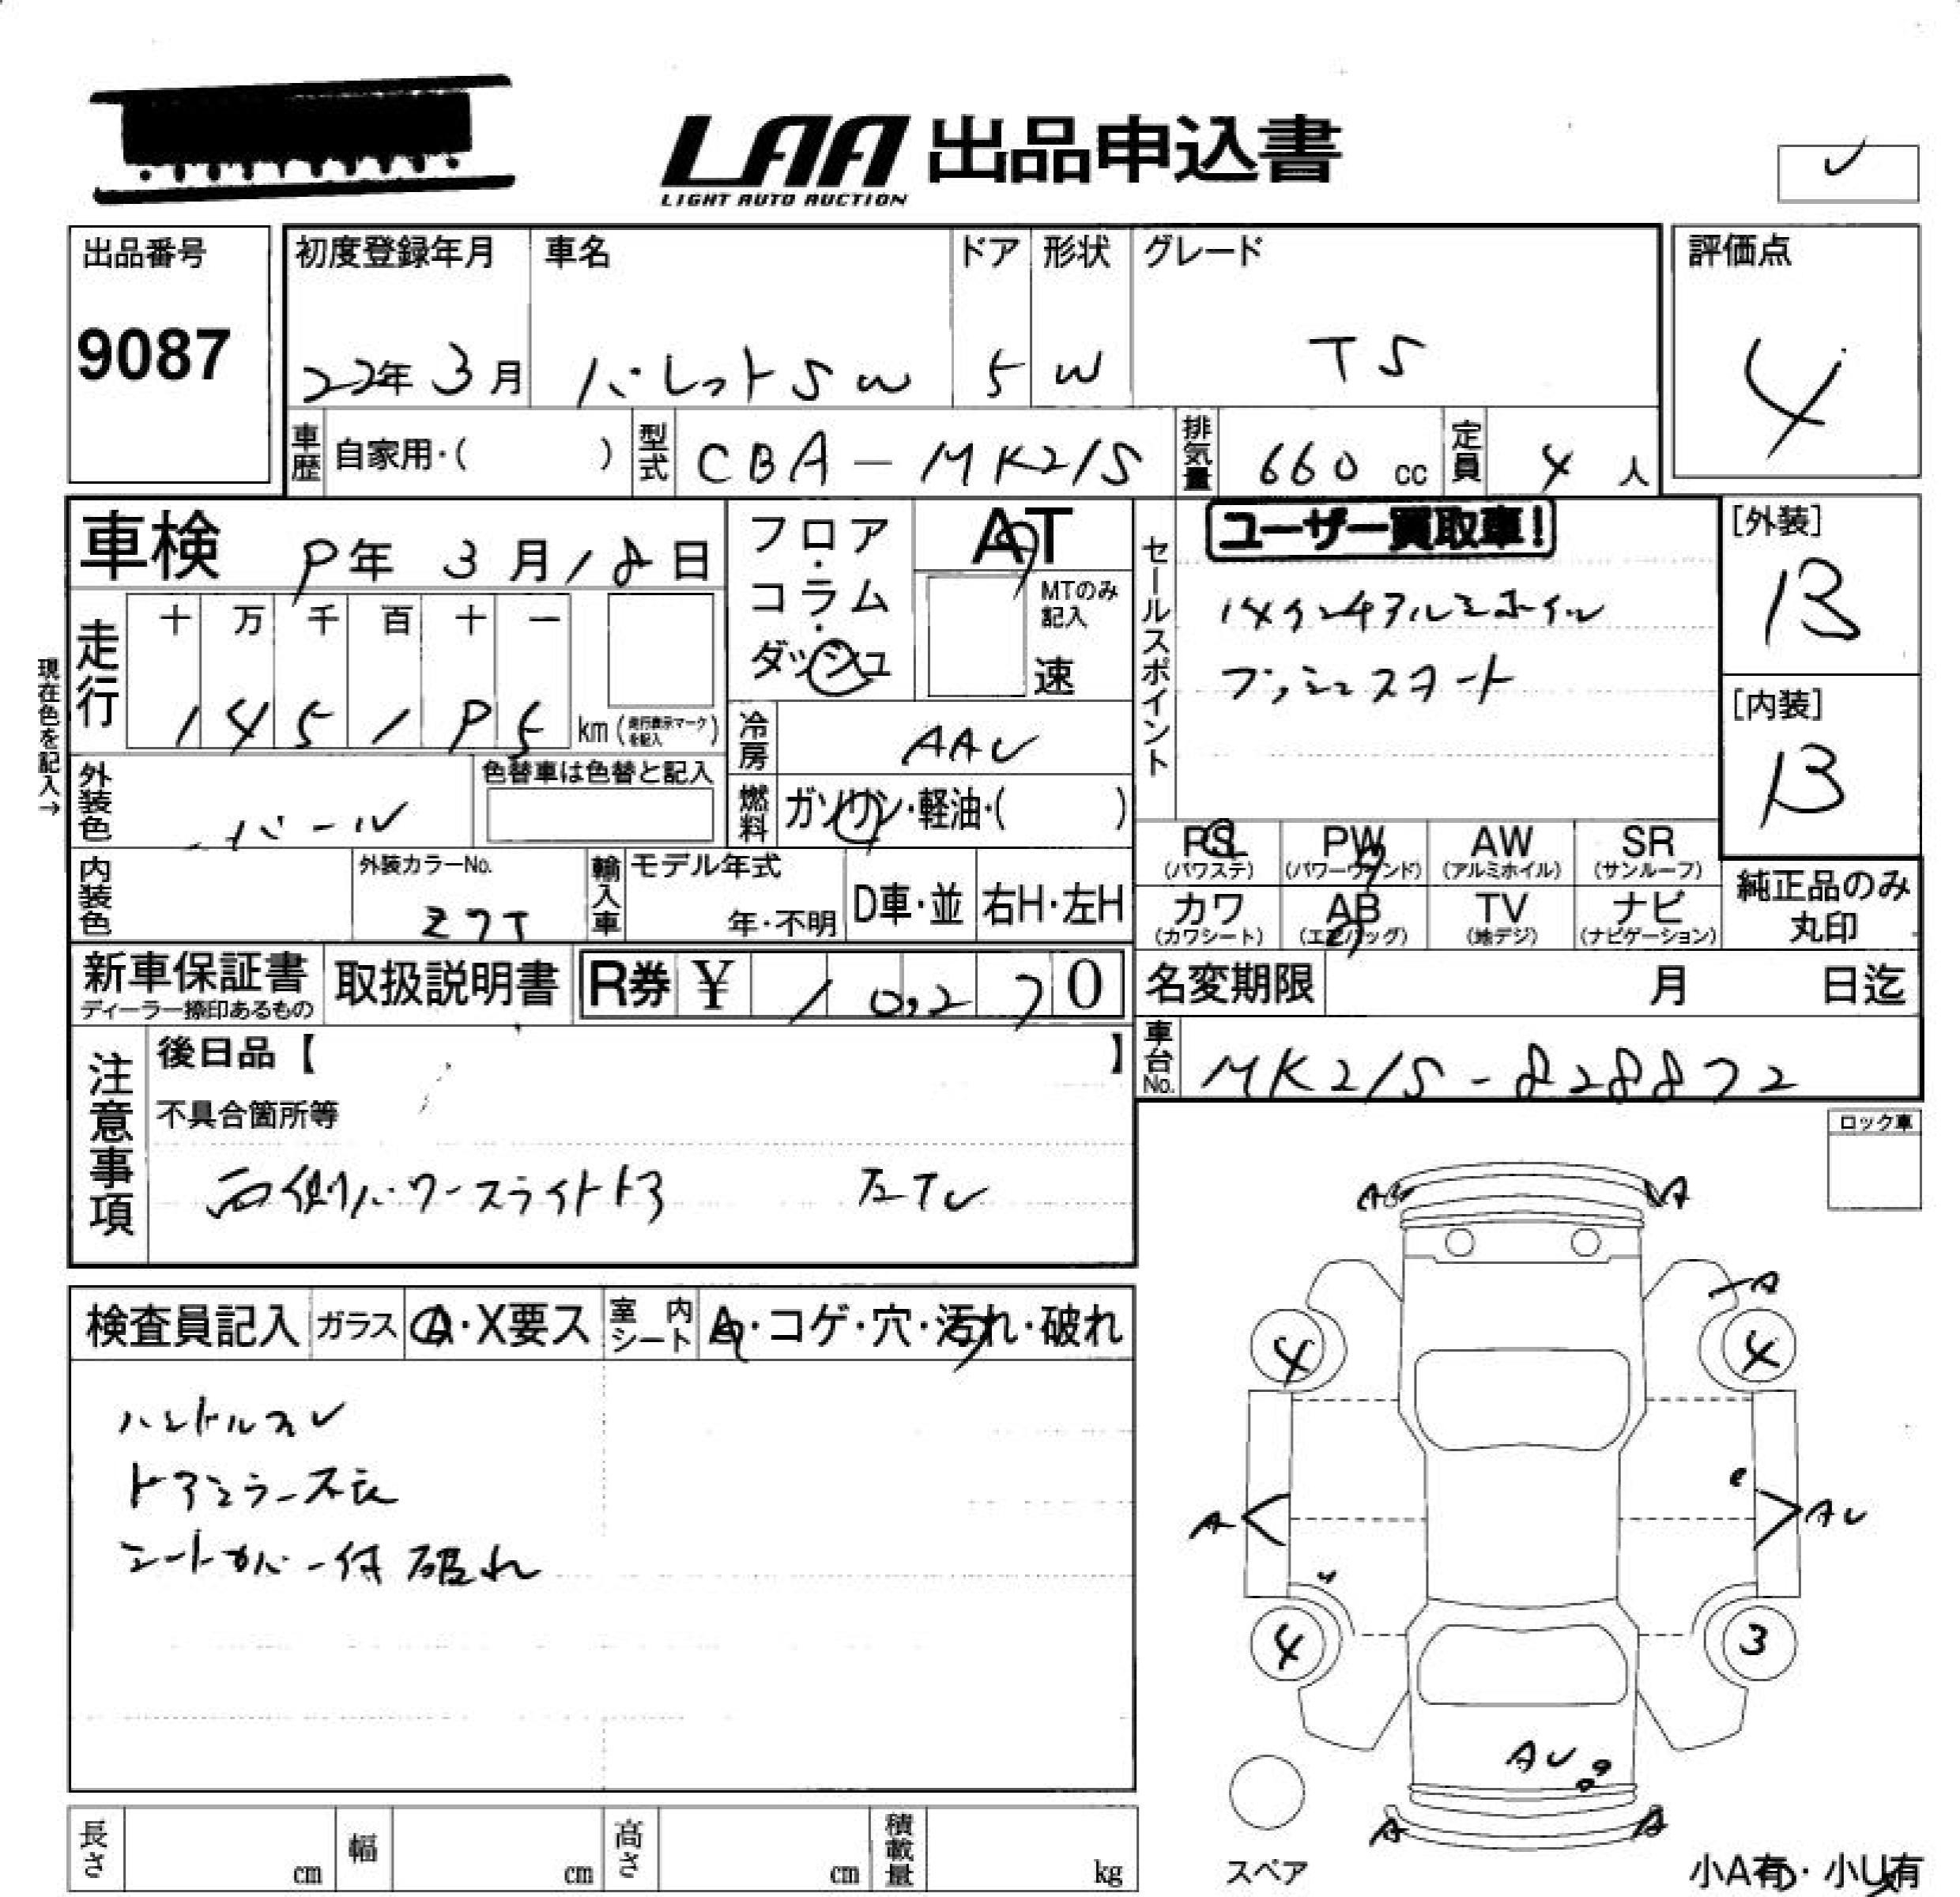 LAA 出品申込書
LIGHT AUTO AUCTION
出品番号
9087
初度登録年月
22年 3月
車名
パレットSW
ドア
5
形状
W
グレード
TS
評価点
4
車歴
自家用・( )
型式
CBA - MK21S
排気量
660 cc
定員
4 人
車検
9年 3月 18日
フロア・コラム・ダッシュ
AT
MTのみ記入
速
セールスポイント
ユーザー買取車!
14インチアルミホイル
プッシュスタート
[外装]
B
[内装]
B
現在色を記入→
走行
十 万 千 百 十 一
1 4 5 1 9 5 km (走行表示マークを記入)
冷房
AAC
外装色
パール
色替車は色替と記入
燃料
ガソリン・軽油・( )
内装色
外装カラーNo.
Z7T
輸入車
モデル年式
年・不明
D車・並
右H・左H
PS (パワステ)
PW (パワーウィンド)
AW (アルミホイル)
SR (サンルーフ)
カワ (カワシート)
AB (エアバッグ)
TV (地デジ)
ナビ (ナビゲーション)
純正品のみ丸印
新車保証書
ディーラー捺印あるもの
取扱説明書
R券 ¥ 10,270
名変期限 月 日迄
車台No.
MK21S-828872
注意事項
後日品【 】
不具合箇所等
右側パワースライドドア
ロック車
検査員記入
ガラス
A・X要ス
室内シート
A・コゲ・穴・汚れ・破れ
ハンドルスレ
ドアミラースレ
シートカバー付 破れ
A
A
A
4
4
A
AU
4
3
AU
A
A
スペア
小A有・小U有
長さ cm
幅 cm
高さ cm
積載量 kg